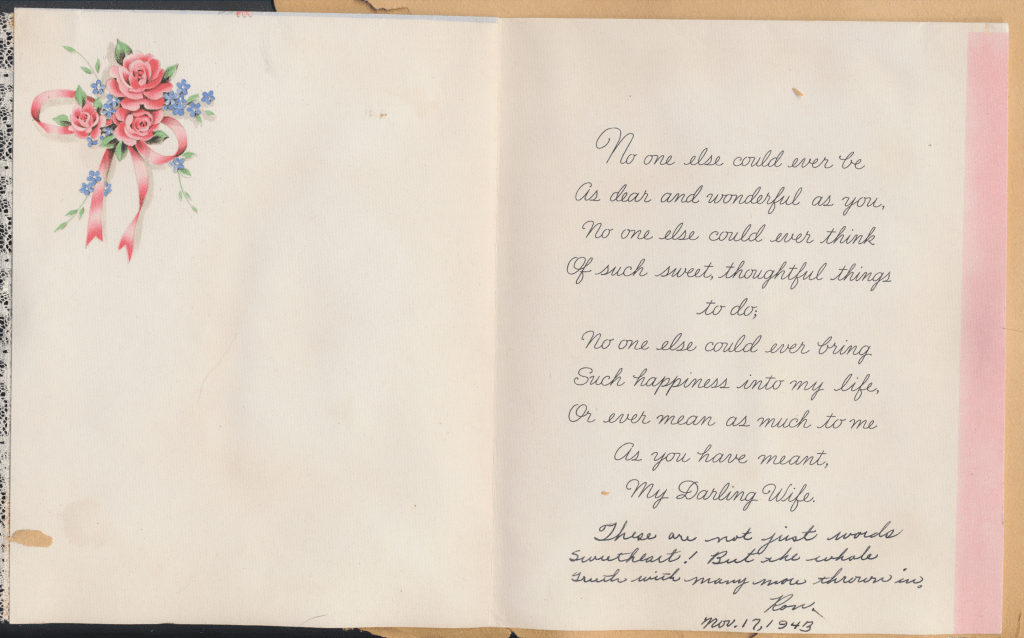 No one else could ever be
As dear and wonderful as you,
No one else could ever think
Of such sweet, thoughtful things
to do;
No one else could ever bring
Such happiness into my life,
Or ever mean as much to me
As you have meant,
My Darling Wife.
These are not just words
Sweetheart! But the whole
truth with many more thrown in.
Ron.
Nov. 17, 1943